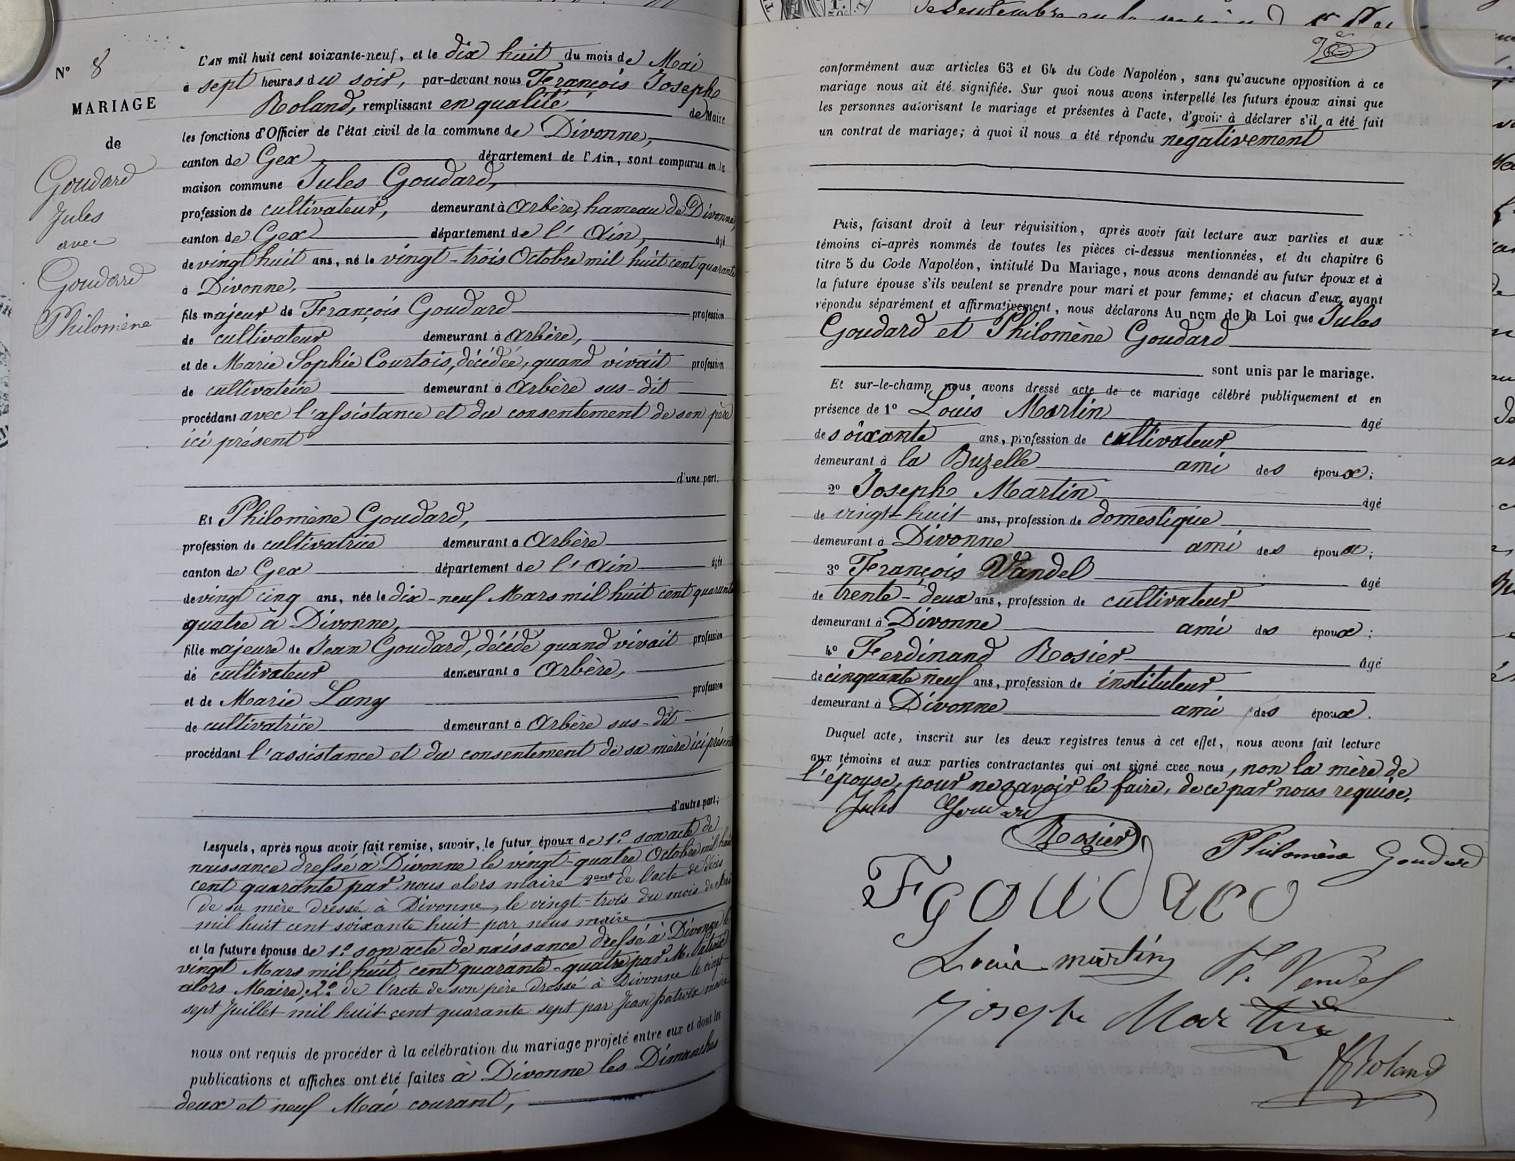 N° 8
MARIAGE
de
Goudard
Jules
avec
Goudard
Philomène
L'AN mil huit cent soixante-neuf, et le dix huit du mois de Mai
à sept heures du soir, par-devant nous François Joseph
Roland, remplissant en qualité de Maire
les fonctions d'Officier de l'état civil de la commune de Divonne,
canton de Gex département de l'Ain, sont comparus en la
maison commune Jules Goudard,
profession de cultivateur, demeurant à Arbère, hameau de Divonne,
canton de Gex département de l'Ain, âgé
de vingt huit ans, né le vingt-trois Octobre mil huit cent quarante
à Divonne,
fils majeur de François Goudard profession
de cultivateur demeurant à Arbère,
et de Marie Sophie Courtois, décédée, quand vivait profession
de cultivatrice demeurant à Arbère sus-dit
procédant avec l'assistance et du consentement de son père
ici présent
d'une part.
Et Philomène Goudard,
profession de cultivatrice demeurant à Arbère
canton de Gex département de l'Ain âgée
de vingt cinq ans, née le dix-neuf Mars mil huit cent quarante
quatre à Divonne,
fille majeure de Jean Goudard, décédé quand vivait profession
de cultivateur demeurant à Arbère,
et de Marie Lany profession
de cultivatrice demeurant à Arbère sus-dit
procédant l'assistance et du consentement de sa mère ici présente
d'autre part;
Lesquels, après nous avoir fait remise, savoir, le futur époux de 1° son acte de
naissance dressé à Divonne le vingt-quatre Octobre mil huit
cent quarante par nous alors maire 2ent de l'acte de décès
de sa mère dressé à Divonne, le vingt-trois du mois de Mai
mil huit cent soixante huit par nous maire
et la future épouse de 1° son acte de naissance dressé à Divonne le
vingt Mars mil huit cent quarante-quatre par M.
alors Maire, 2° de l'acte de son père dressé à Divonne le vingt-
sept Juillet mil huit cent quarante sept par Jean maire
nous ont requis de procéder à la célébration du mariage projeté entre eux et dont les
publications et affiches ont été faites à Divonne les Dimanches
deux et neuf Mai courant,
conformément aux articles 63 et 64 du Code Napoléon, sans qu'aucune opposition à ce
mariage nous ait été signifiée. Sur quoi nous avons interpellé les futurs époux ainsi que
les personnes autorisant le mariage et présentes à l'acte, d'avoir à déclarer s'il a été fait
un contrat de mariage; à quoi il nous a été répondu négativement
Puis, faisant droit à leur réquisition, après avoir fait lecture aux parties et aux
témoins ci-après nommés de toutes les pièces ci-dessus mentionnées, et du chapitre 6
titre 5 du Code Napoléon, intitulé Du Mariage, nous avons demandé au futur époux et à
la future épouse s'ils veulent se prendre pour mari et pour femme; et chacun d'eux ayant
répondu séparément et affirmativement, nous déclarons Au nom de la Loi que Jules
Goudard et Philomène Goudard
sont unis par le mariage.
Et sur-le-champ nous avons dressé acte de ce mariage célébré publiquement et en
présence de 1° Louis Martin âgé
de soixante ans, profession de cultivateur
demeurant à la Buzelle ami des époux;
2° Joseph Martin âgé
de vingt-huit ans, profession de domestique
demeurant à Divonne ami des époux;
3° François Vandel âgé
de trente-deux ans, profession de cultivateur
demeurant à Divonne ami des époux;
4° Ferdinand Rosier âgé
de cinquante neuf ans, profession de instituteur
demeurant à Divonne ami des époux.
Duquel acte, inscrit sur les deux registres tenus à cet effet, nous avons fait lecture
aux témoins et aux parties contractantes qui ont signé avec nous, non la mère de
l'épouse, pour ne savoir le faire, de ce par nous requise.
Jules Goudard
Rosier
Philomène Goudard
F Goudard
Louis martin
F. Vendel
Joseph Martin
Roland